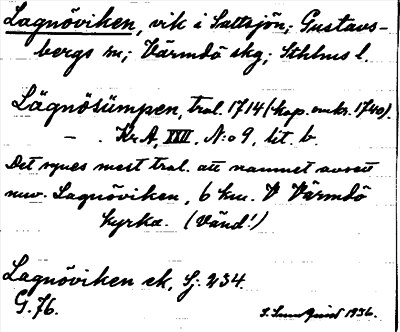 Lagnöviken, vik i Saltsjön; Gustavs-
bergs sn; Värmdö skg; Sthlms l.
Lägnösümpen, tral. 1714 (kop. omkr. 1740).
– . Kr A, XVII, N:o 9, lit. b.
Det synes mest tral. att namnet avsett
nuv. Lagnöviken, 6 km. V Värmdö
kyrka. (Vänd!)
Lagnöviken ek, Sj. 234.
G. 76.
S. Sundquist 1936.